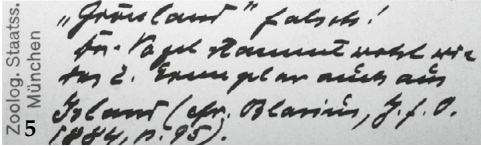 Zoolog. Staatss.
München
5
„Grönland“ falsch!
Der Vogel stammt wohl wie
das 2. Exemplar auch aus
Island (cfr. Blasius, J. f. O.
1884, p. 95).